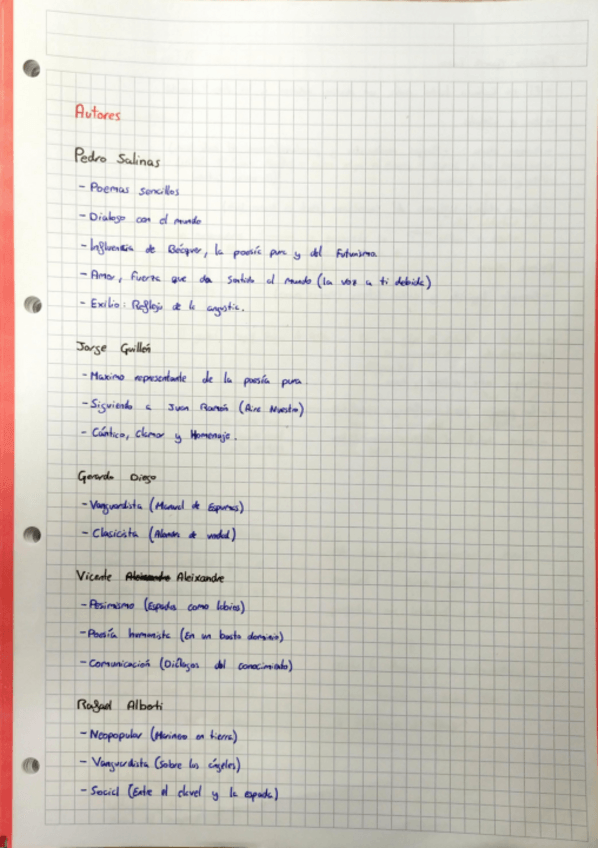 Autores
Pedro Salinas
- Poemas sencillos
- Dialogo con el mundo
- Influencia de Bécquer, la poesía pura y del Futurismo.
- Amor, fuerza que da sentido al mundo (la voz a ti debida)
- Exilio: Reflejo de la angustia.
Jorge Guillén
- Maximo representante de la poesía pura
- Siguiendo a Juan Ramón (Aire Nuestro)
- Cántico, Clamor y Homenaje.
Gerardo Diego
- Vanguardista (Manual de Espumas)
- Clasicista (Alondra de verdad)
Vicente Aleixandre Aleixandre
- Pesimismo (Espadas como labios)
- Poesía humanista (En un basto dominio)
- Comunicación (Diálogos del conocimiento)
Rafael Alberti
- Neopopular (Marinero en tierra)
- Vanguardista (Sobre los ángeles)
- Social (Entre el clavel y la espada)